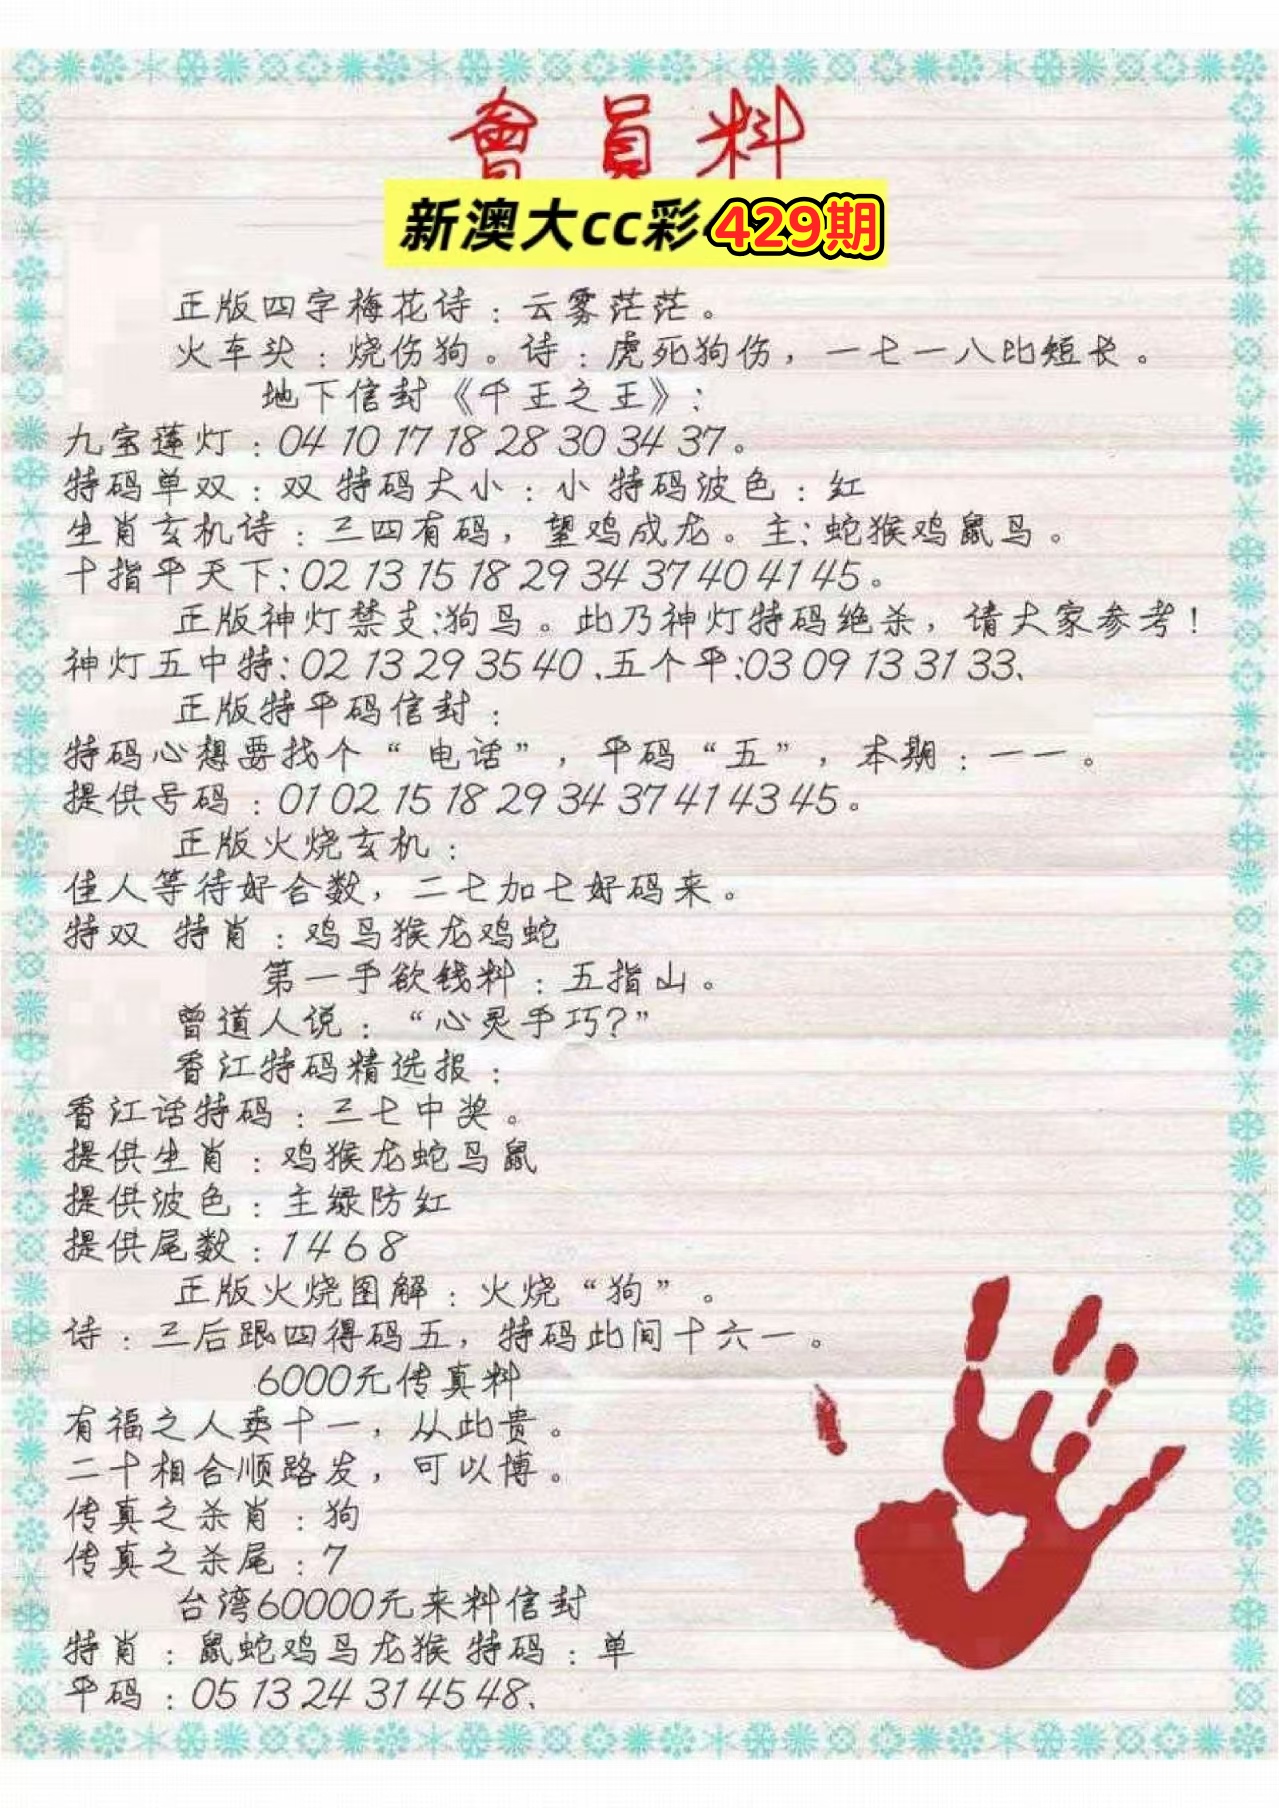 會員料
新澳大cc彩 429期
正版四字梅花诗：云雾茫茫。
火车头：烧伤狗。诗：虎死狗伤，一七一八比短长。
地下信封《千王之王》：
九宝莲灯：04 10 17 18 28 30 34 37。
特码单双：双 特码大小：小 特码波色：红
生肖玄机诗：三四有码，望鸡成龙。主：蛇猴鸡鼠马。
十指平天下：02 13 15 18 29 34 37 40 41 45。
正版神灯禁支：狗马。此乃神灯特码绝杀，请大家参考！
神灯五中特：02 13 29 35 40、五个平：03 09 13 31 33、
正版特平码信封：
特码心想要找个“电话”，平码“五”，本期：一一。
提供号码：01 02 15 18 29 34 37 41 43 45。
正版火烧玄机：
佳人等待好合数，二七加七好码来。
特双 特肖：鸡马猴龙鸡蛇
第一手欲钱料：五指山。
曾道人说：“心灵手巧？”
香江特码精选报：
香江话特码：三七中奖。
提供生肖：鸡猴龙蛇马鼠
提供波色：主绿防红
提供尾数：1 4 6 8
正版火烧图解：火烧“狗”。
诗：三后跟四得码五，特码此间十六一。
6000元传真料
有福之人卖十一，从此贵。
二十相合顺路发，可以博。
传真之杀肖：狗
传真之杀尾：7
台湾60000元来料信封
特肖：鼠蛇鸡马龙猴 特码：单
平码：05 13 24 31 45 48、